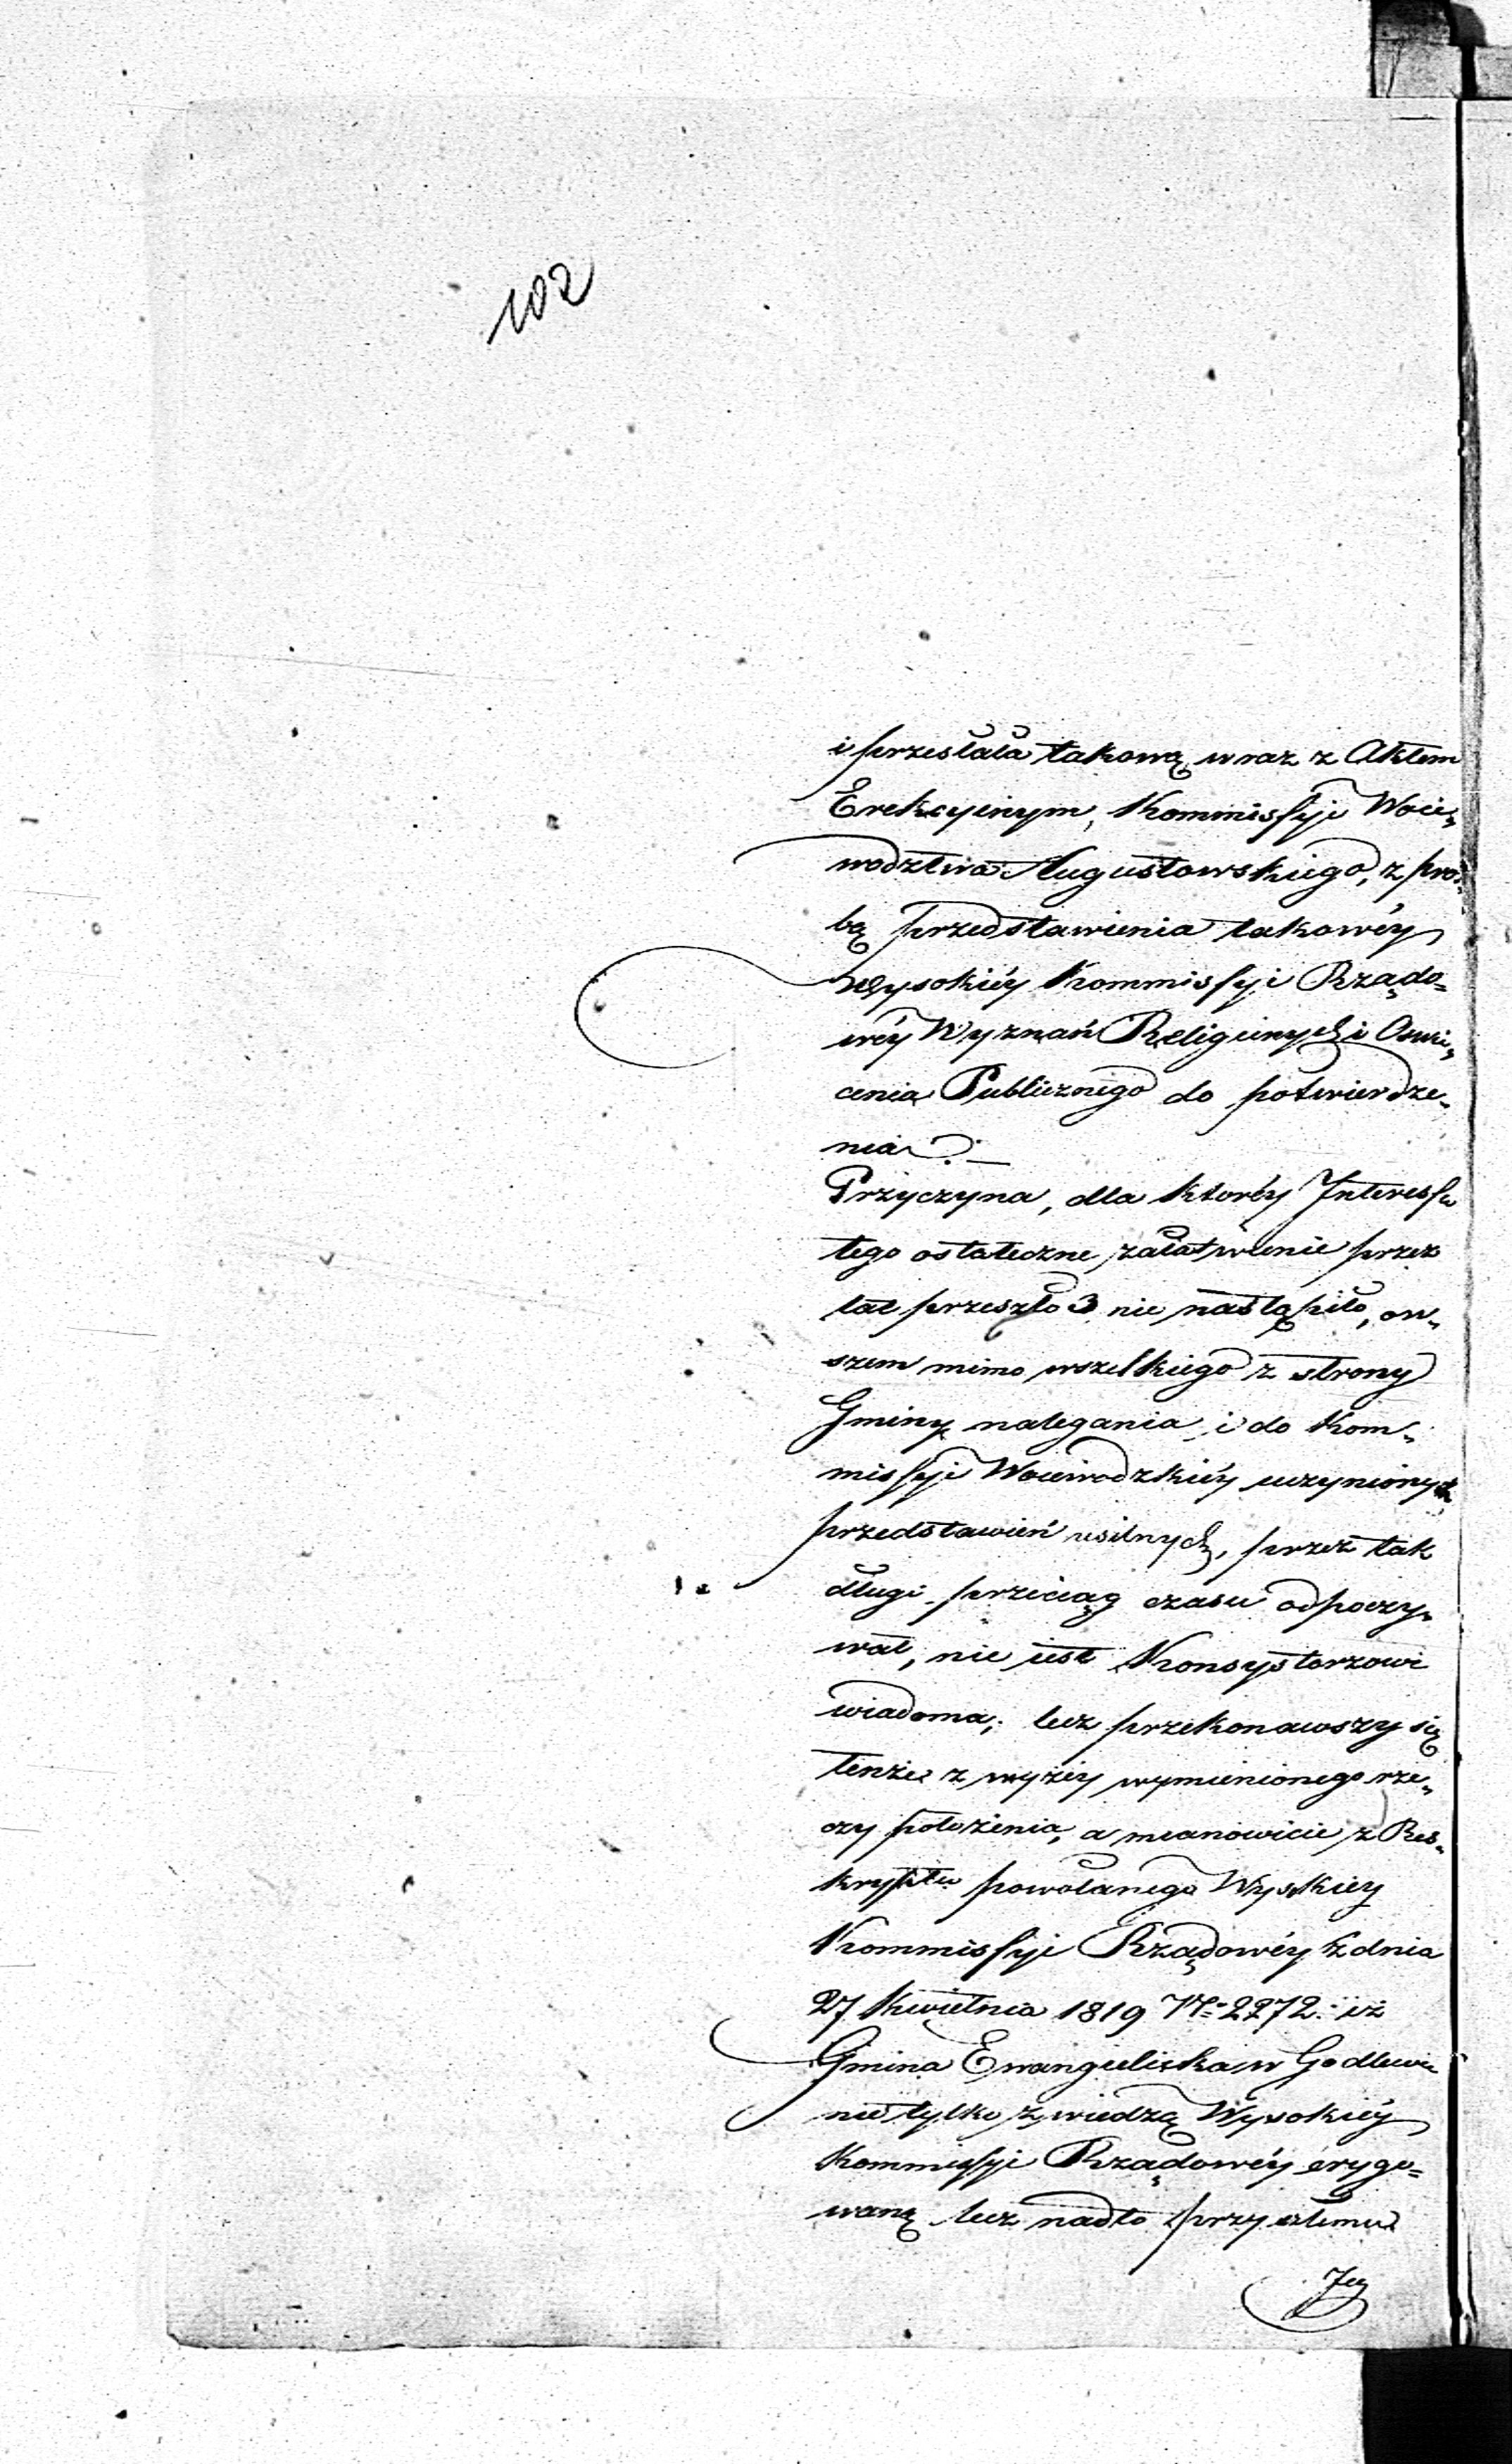 102
i przesłała takową wraz z Aktem
Erekcyinym, Kommissyi Woie-
wodztwa Augustowskiego, z proź-
bą przedstawienia takowéy
Wysokiéy Kommissyi Rządo=
wéy Wyznań Religiinych i Oświe-
cenia Publicznego do potwierdze-
nia.
Przyczyna, dla któréy Interessu
tego ostateczne załatwienie przez
lat przeszło 3 nie nastąpiło, ow-
szem mimo wszelkiego z strony
Gminy nalegania i do Kom-
missyi Woiewodzkiéy uczynionych
przedstawień usilnych, przez tak
długi przeciąg czasu odpoczy-
wał, nie iest Konsystorzowi
wiadoma; lecz przekonawszy się
tenże z wyżéy wymienionego rze-
czy położenia, a mianowicie z Res-
kryptu powołanego Wysokiey
Kommissyi Rządowéy z dnia
27 Kwietnia 1819 No 2272. iż
Gmina Ewangielicka w Godlewie
nie tylko z wiedzą Wysokiéy
Kommissyi Rządowéy erygo=
waną lecz nadto przy